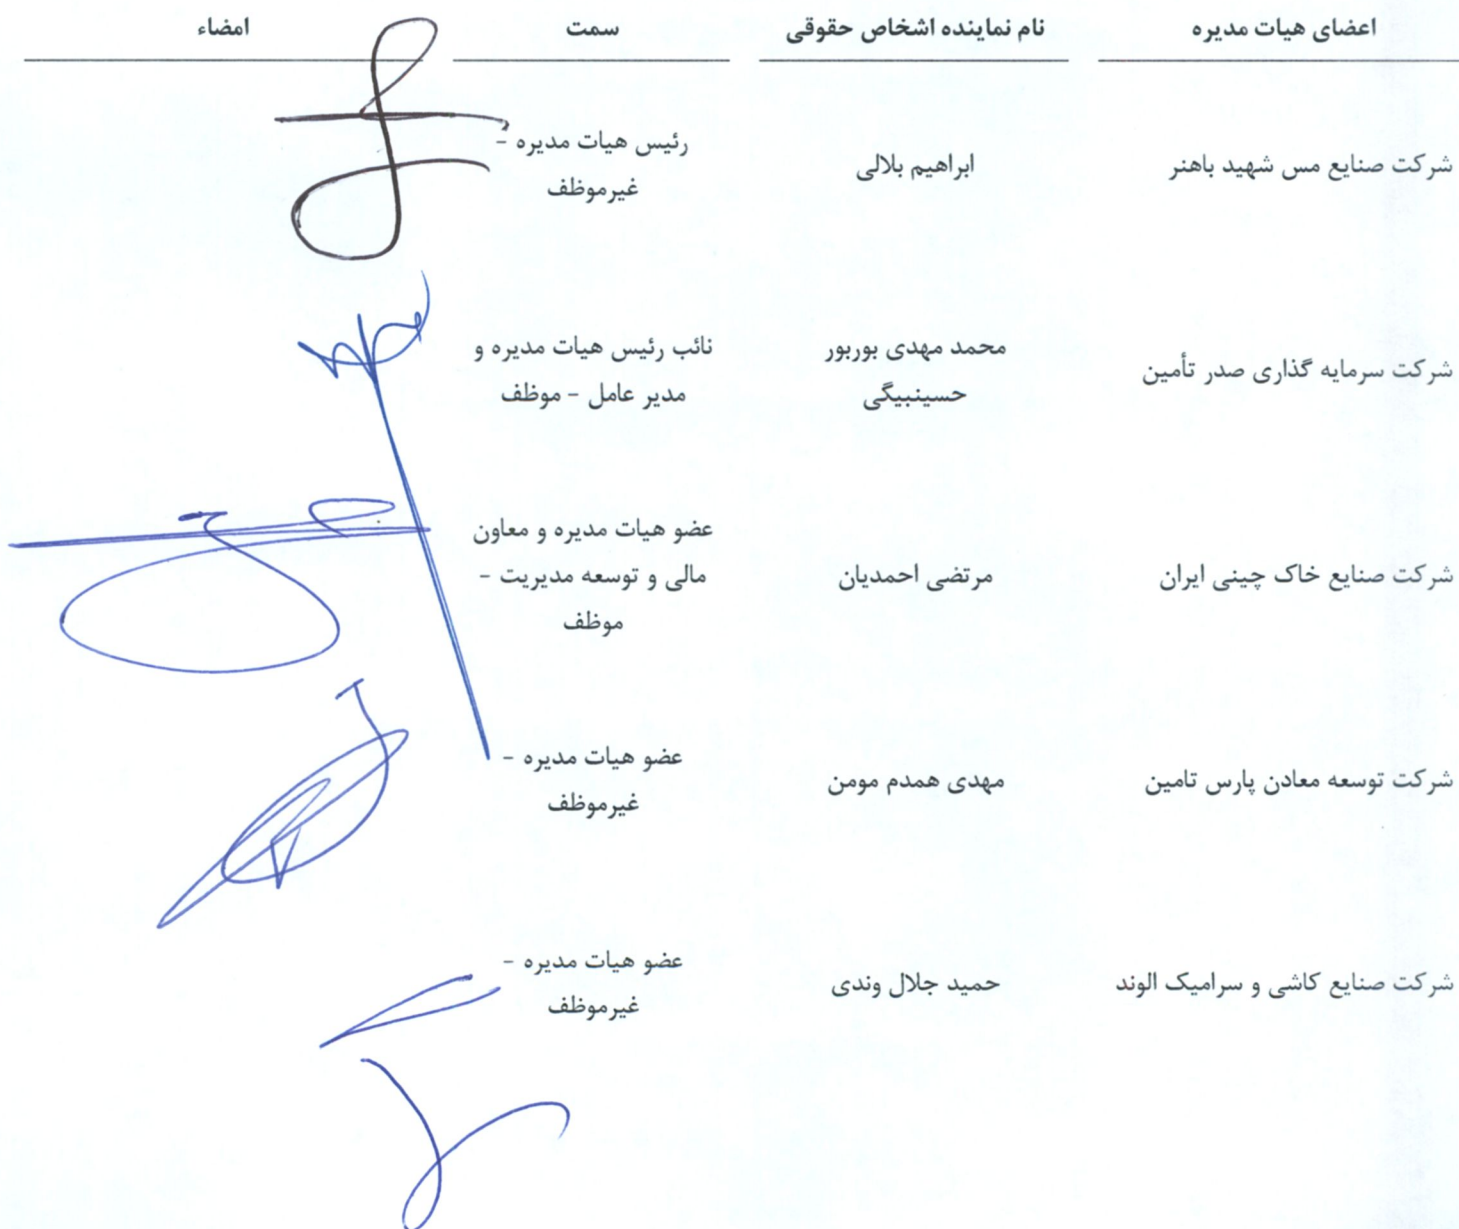 اعضای هیات مدیره	نام نماینده اشخاص حقوقی	سمت	امضاء
شرکت صنایع مس شهید باهنر
ابراهیم بلالی
رئیس هیات مدیره -
غیرموظف
شرکت سرمایه گذاری صدر تأمین
محمد مهدی بوربور
حسینبیگی
نائب رئیس هیات مدیره و
مدیر عامل - موظف
شرکت صنایع خاک چینی ایران
مرتضی احمدیان
عضو هیات مدیره و معاون
مالی و توسعه مدیریت -
موظف
شرکت توسعه معادن پارس تامین
مهدی همدم مومن
عضو هیات مدیره -
غیرموظف
شرکت صنایع کاشی و سرامیک الوند
حمید جلال وندی
عضو هیات مدیره -
غیرموظف